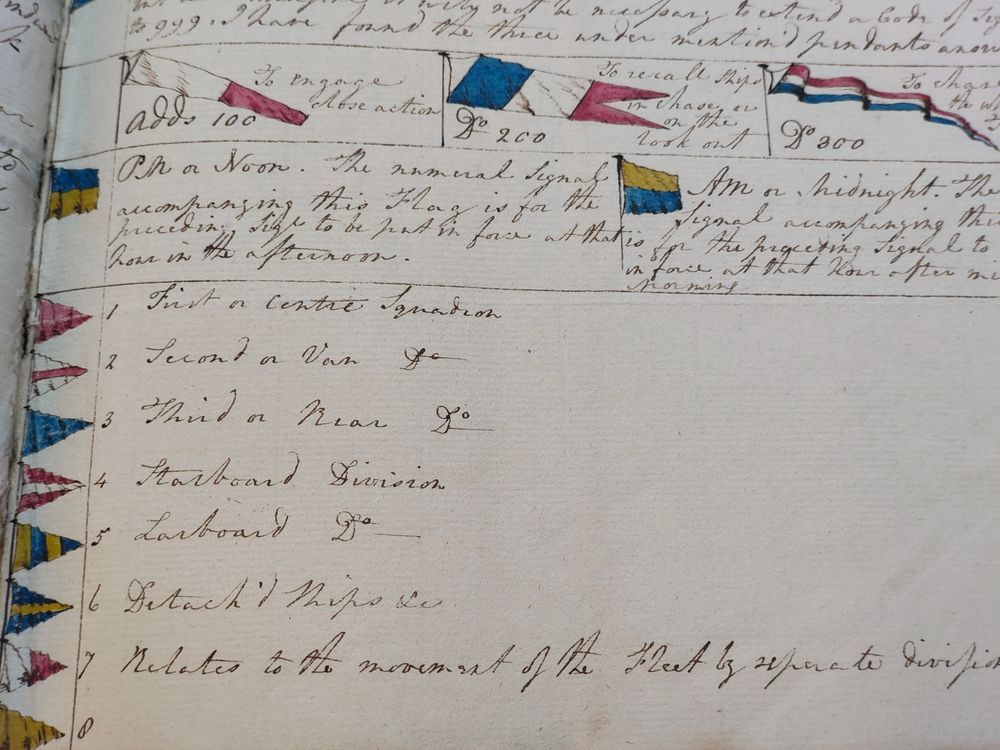 not be necessary to extend a Code of
to 999. I have found the three under mention'd pendants
To engage
close action
adds 100
To recall Ships
in chase or
on the
look out
Do 200
Do 300
PM or Noon. The numeral Signal
accompanging this Flag is for the
to be put in force at that
hour in the afternoon.
AM or Midnight. The
Signal accompanging this
is for the preceding Signal to
in force at that Hour after
Morning
1 First or Centre Squadron
2 Second or Van Do
3 Third or Rear Do
4 Starboard Division
5 Larboard Do
6 Detach'd Ships &c
7 Relates to the movement of the Fleet by seperate division
8